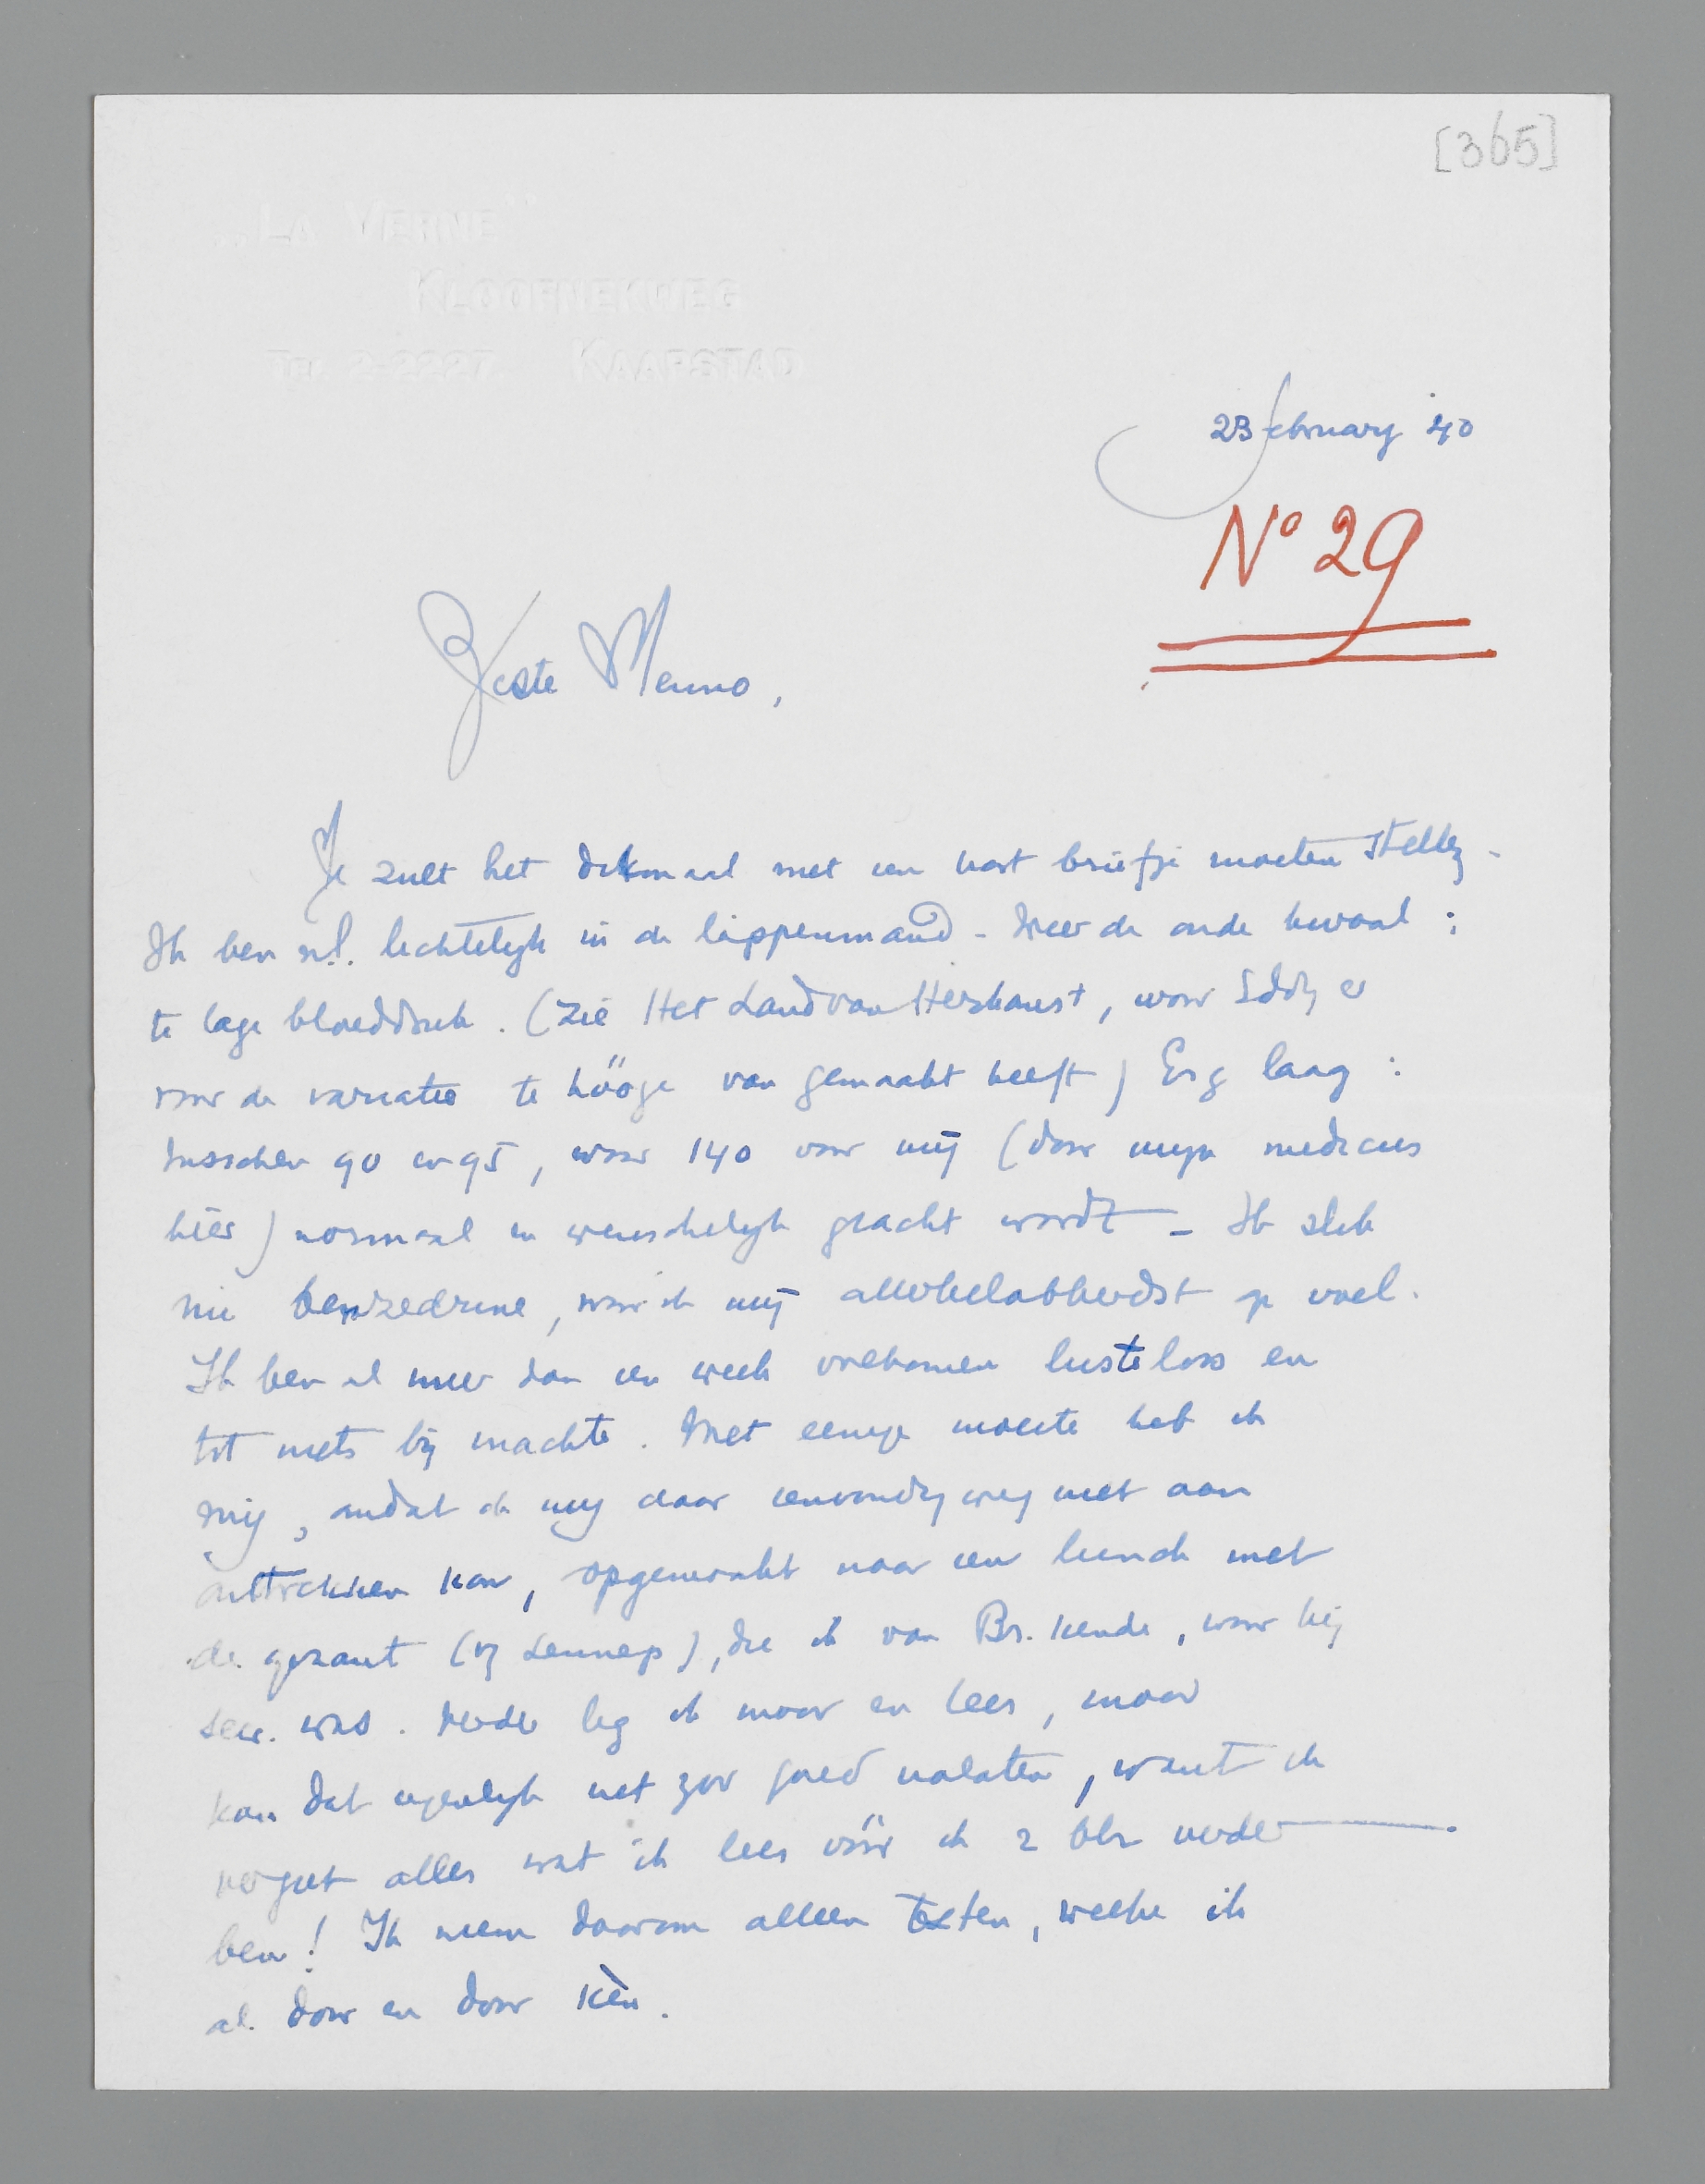 [365]
„La Verne"
Kloofnekweg
Tel. 2-2227. Kaapstad
23 february '40
No 29
Beste Menno,
Je zult het ditmaal met een kort briefje moeten stellen.
Ik ben n.l. lichtelijk in de lappenmand. Weer de oude kwaal:
te lage bloeddruk. (Zie Het Land van Herkomst, waar Eddy er
voor de variatie te hööge van gemaakt heeft) Erg laag:
tusschen 90 en 95, waar 140 voor mij (door mijn medicus
hier) normaal en wenschelijk geacht wordt. Ik slik
nu benzedrine, waar ik mij allerbelabberdst op voel.
Ik ben al meer dan een week volkomen lusteloos en
tot niets bij machte. Met eenige moeite heb ik
mij, omdat ik mij daar eenvoudig weg niet aan
onttrekken kan, opgemaakt naar een lunch met
de gezant (v. Lennep), die ik van Br. kende, waar hij
secr. was. Verder lig ik maar en lees, maar
kan dat eigenlijk net zoo goed nalaten, want ik
vergeet alles wat ik lees vóór ik 2 blz verder
ben! Ik neem daarom alleen texten, welke ik
al door en door kèn.